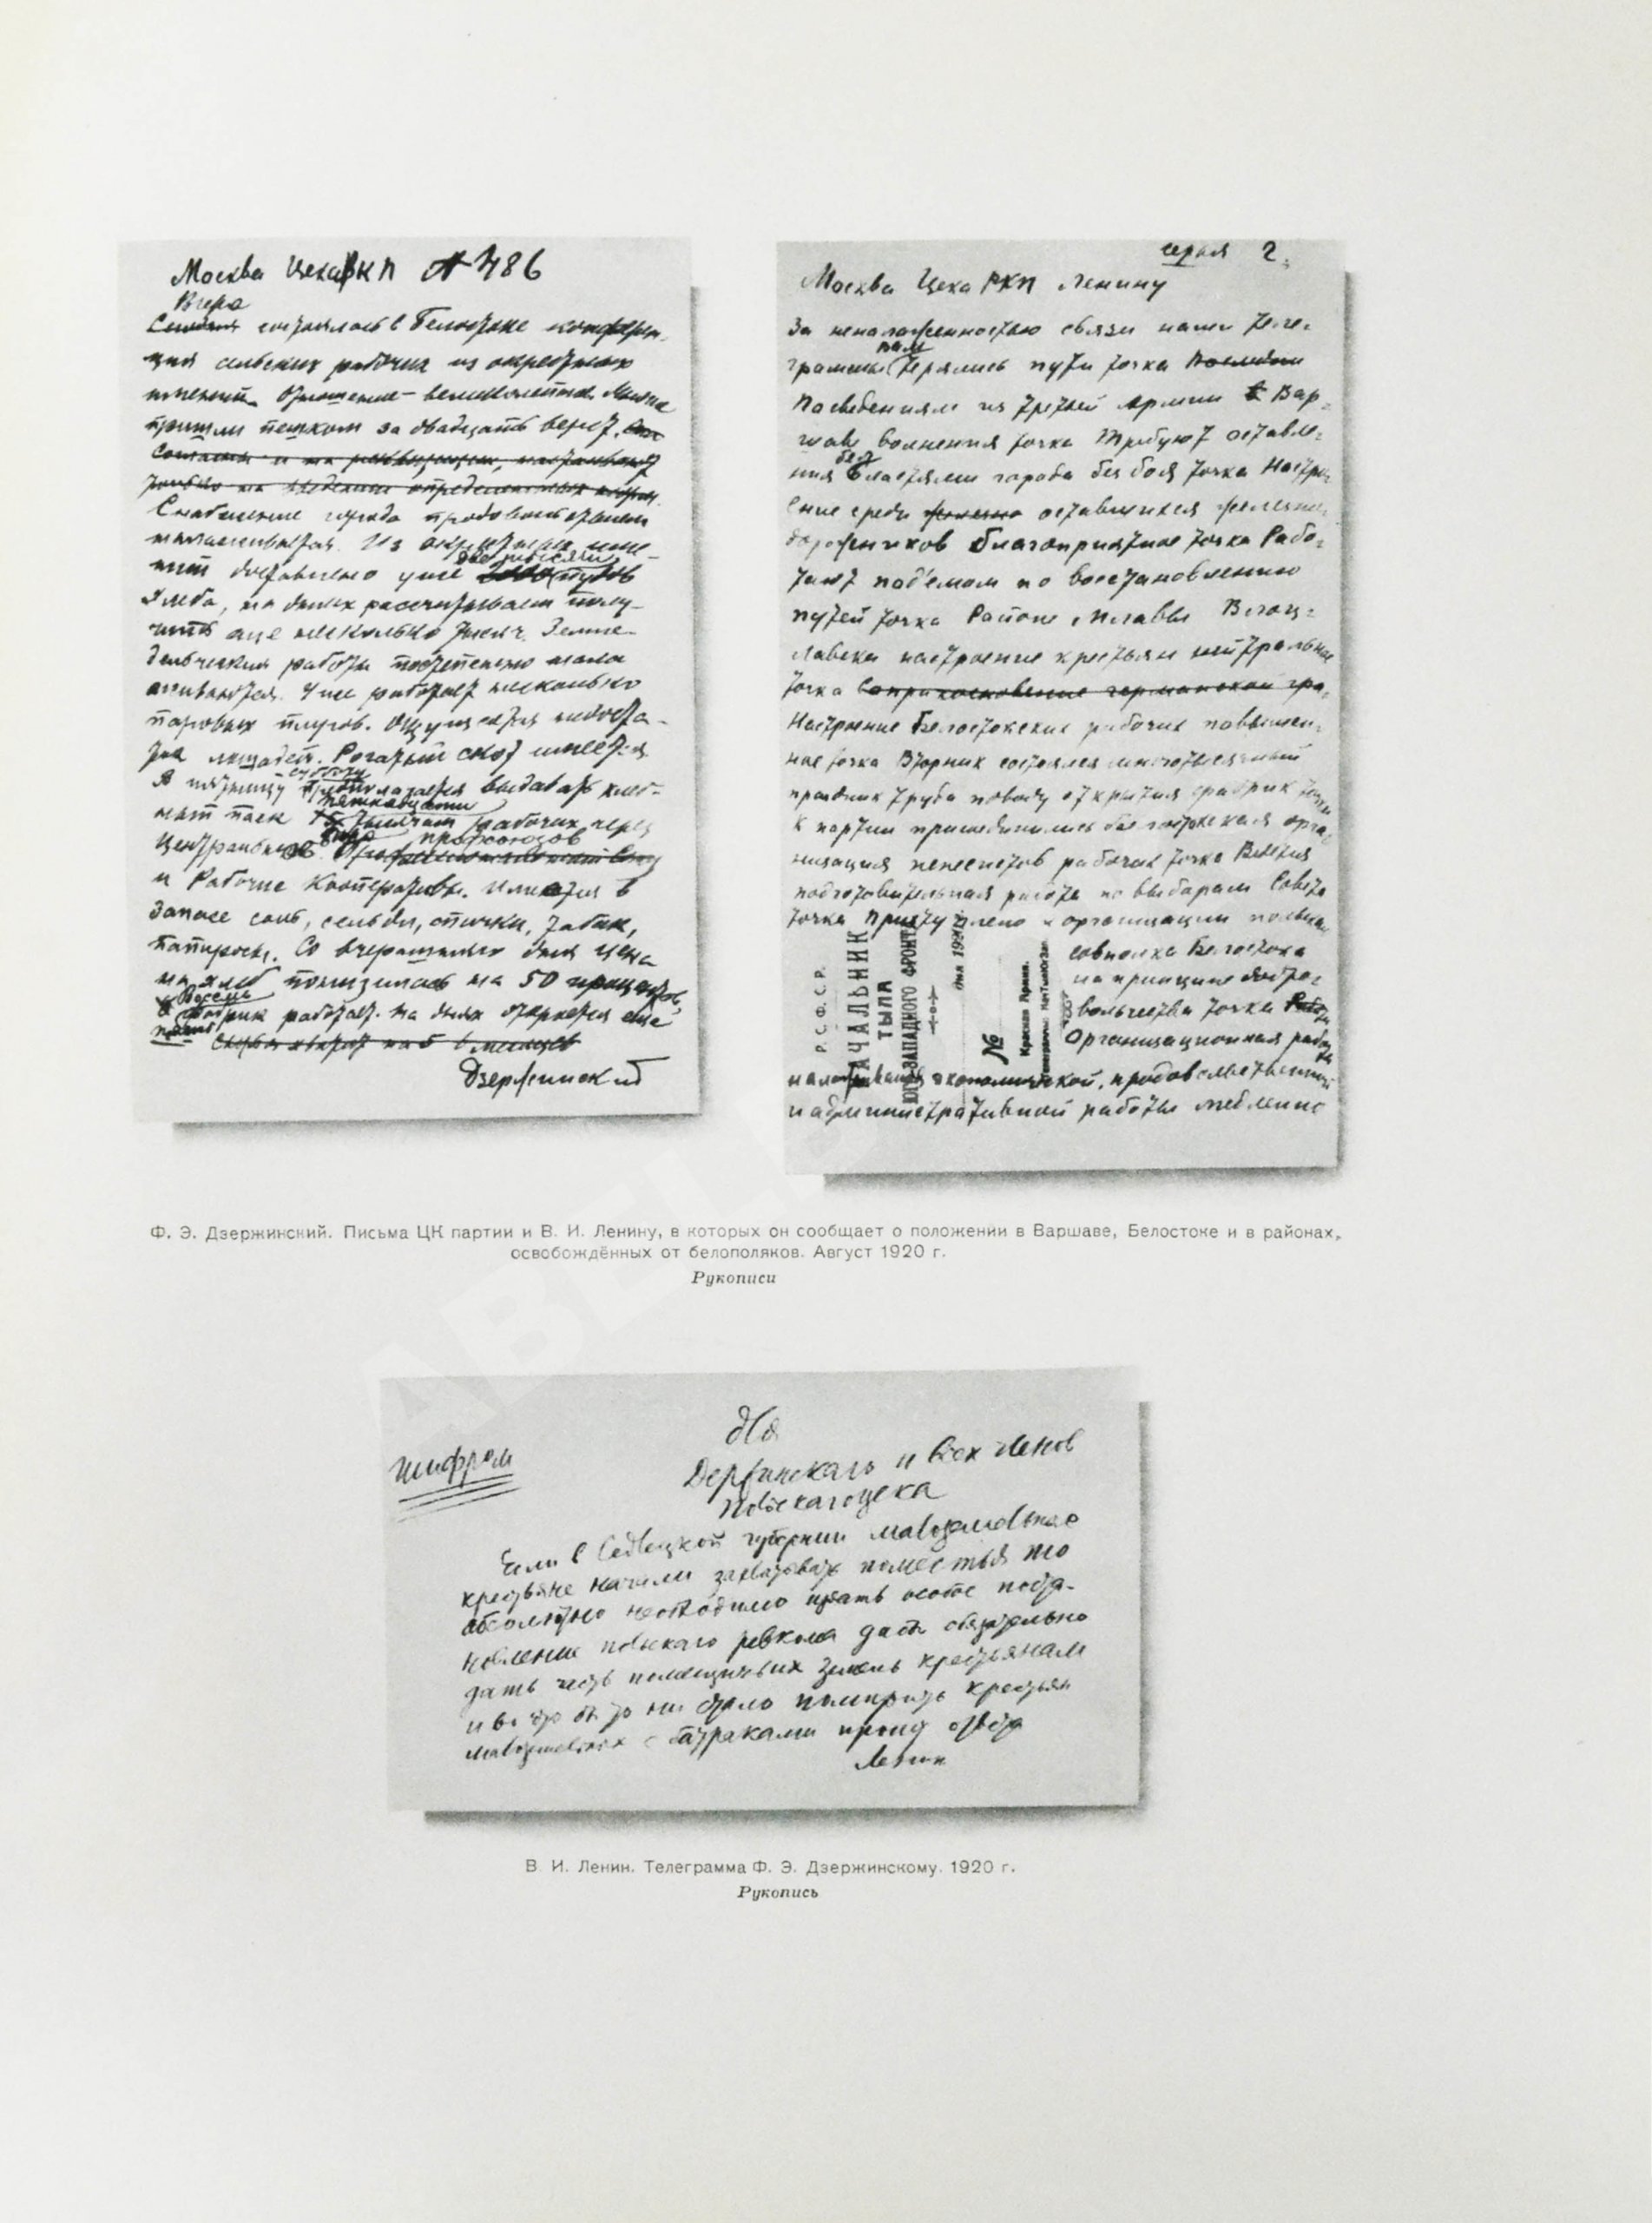 Москва Цека РКП № 486
Вчера
Сегодня состоялась в Белостоке конферен-
ция сельских рабочих из окрестных
имений. Отношение – великолепное. Многие
пришли пешком за двадцать верст.
Снабжение города продовольствием
налаживается. Из окрестных име-
две тысячи
ний доставлено уже пудов
хлеба, на днях рассчитываем полу-
чить еще несколько тысяч. Земле-
дельческие работы постепенно нала
живаются. Уже работает несколько
паровых плугов. Ощущается недоста-
ток лошадей. Рогатый скот имеется.
субботу
В пятницу предполагается выдавать хлеб-
пятнадцати
ный паек тысячам рабочих через
бюро профсоюзов
Центральное
и Рабочие Кооперативы. Имеется в
запасе соль, сельди, спички, табак,
папиросы. Со вчерашнего дня цена
на хлеб понизилась на 50 процентов,
Восемь
фабрик работает. На днях откроется еще
Дзержинский
серия 2.
Москва Цека РКП Ленину
За неналаженностью связи наши теле-
вам
граммы терялись пути точка
По сведениям из третьей армии в Вар-
шаве волнения точка Требуют оставле-
ния властями города без боя точка Настро-
ение среди оставшихся железно-
дорожников благоприятное точка Рабо-
тают под'емом по восстановлению
путей точка Районе Млавы Влоц-
лавска настроение крестьян нейтральное
точка Соприкосновение германской гра-
Настроение Белостокских рабочих повышен-
ное точка Вторник состоялся многотысячный
праздник труда поводу открытия фабрик точка
К партии присоединились белостокская орга-
низация пепеэсовтов рабочих точка Ведется
подготовительная работа по выборам Совета
точка Приступлено к организации
совполка Белостока
на принципе добро-
вольчества точка
Организационная работа
налаживания экономической, продовольственной
и административной работы медленно
Р. С. Ф. С. Р.
НАЧАЛЬНИК
ТЫЛА
ЮГО-ЗАПАДНОГО ФРОНТА
№
Красная Армия.
Ф. Э. Дзержинский. Письма ЦК партии и В. И. Ленину, в которых он сообщает о положении в Варшаве, Белостоке и в районах,
освобождённых от белополяков. Август 1920 г.
Рукописи
шифром
Для
Дзержинского и всех членов
Польскагоцека
Если в Седлецкой губернии малоземельные
крестьяне начали захватывать поместья то
абсолютно необходимо издать особое поста-
новление польского ревкома дабы обязательно
дать часть помещичьих земель крестьянам
и во что бы то ни стало помирить крестьян
малоземельных с батраками прошу ответа
Ленин
В. И. Ленин. Телеграмма Ф. Э. Дзержинскому. 1920 г.
Рукопись